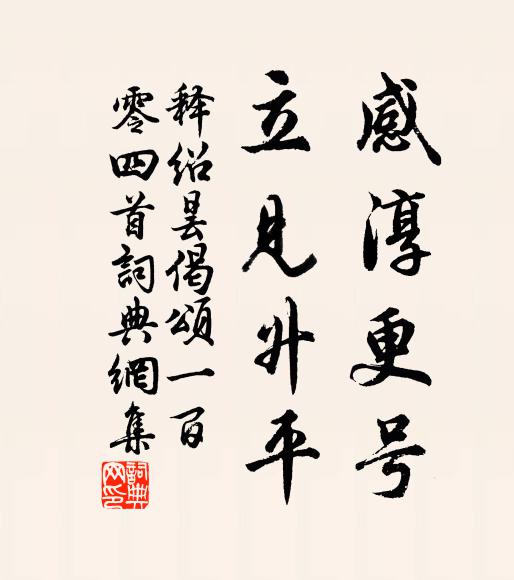 感淳更号
立見升平
释绍昙偈頌一百
零四首詞典網集
詞典
网印